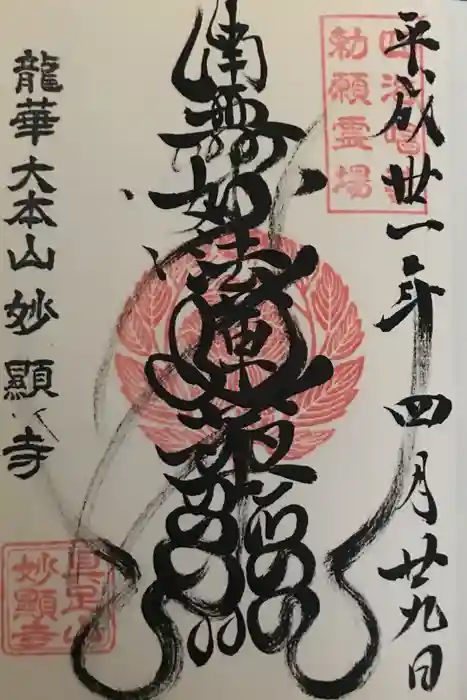 平成卅一年四月廿九日
四海唱導
勅願霊場
南無妙法蓮華経
龍華大本山妙顯寺
具足山
妙顯寺